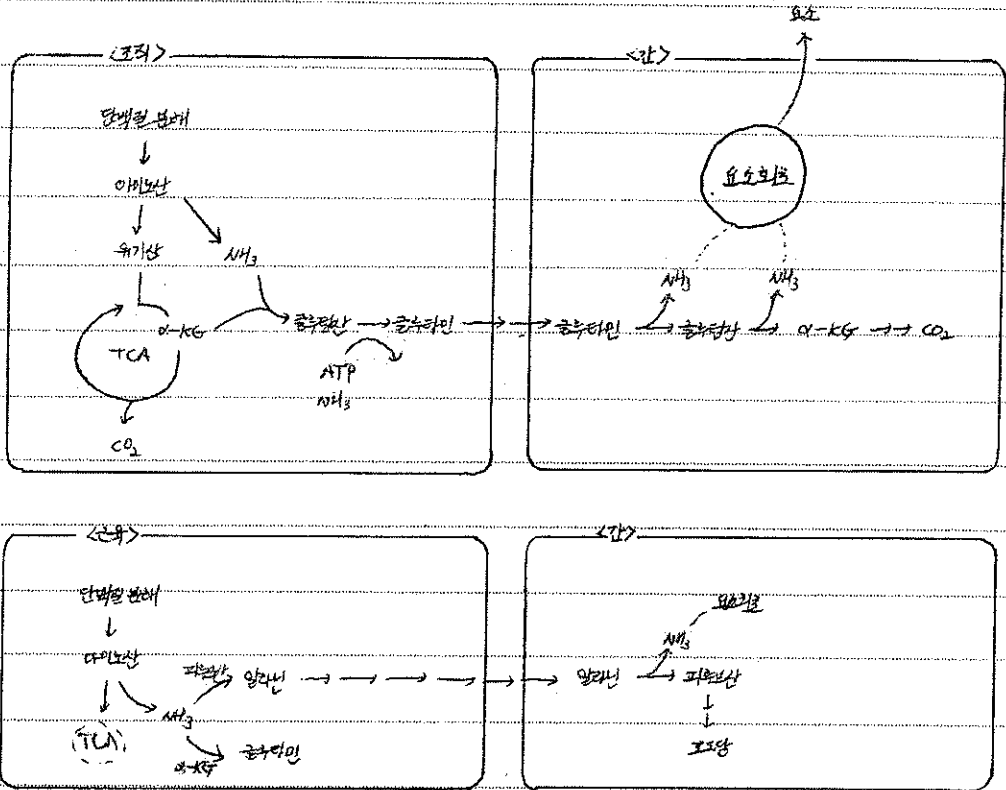 요소
<조직>
<간>
단백질 분해
아미노산
유기산
NH₃
α-KG
TCA
CO₂
글루탐산 → 글루타민
ATP
NH₃
요소회로
NH₃
NH₃
글루타민 → 글루탐산 → α-KG → → CO₂
<근육>
<간>
단백질 분해
아미노산
TCA
NH₃
피루브산
알라닌
α-KG
글루타민
요소회로
NH₃
알라닌 → 피루브산
포도당